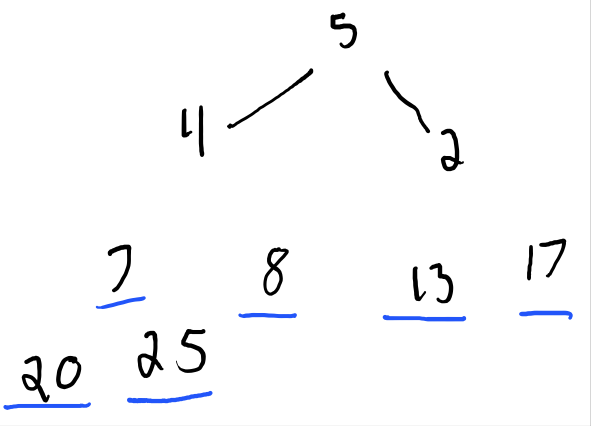 5
4 2
7 8 13 17
20 25